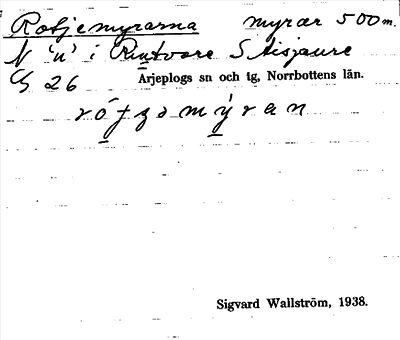 Rotjemyrarna myrar 500 m.
N 'n' i Rintvare S Aisjaure
26 Arjeplogs sn och tg, Norrbottens län.
Sigvard Wallström, 1938.